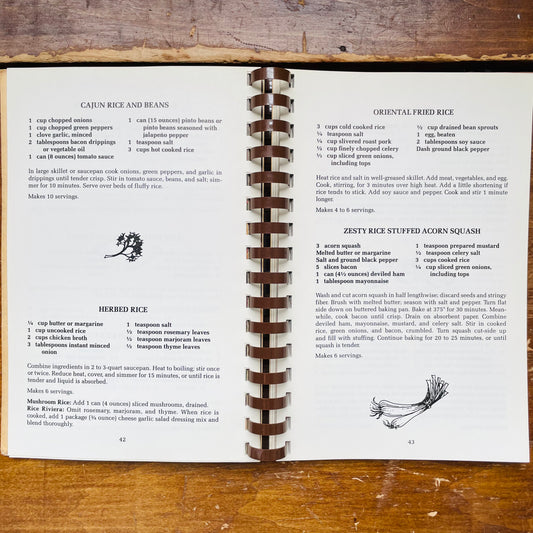 CAJUN RICE AND BEANS
1 cup chopped onions
1 cup chopped green peppers
1 clove garlic, minced
2 tablespoons bacon drippings
or vegetable oil
1 can (8 ounces) tomato sauce
1 can (15 ounces) pinto beans or
pinto beans seasoned with
jalapeño pepper
1 teaspoon salt
3 cups hot cooked rice
In large skillet or saucepan cook onions, green peppers, and garlic in
drippings until tender crisp. Stir in tomato sauce, beans, and salt; sim-
mer for 10 minutes. Serve over beds of fluffy rice.
Makes 10 servings.
HERBED RICE
¼ cup butter or margarine
1 cup uncooked rice
2 cups chicken broth
3 tablespoons instant minced
onion
1 teaspoon salt
½ teaspoon rosemary leaves
½ teaspoon marjoram leaves
½ teaspoon thyme leaves
Combine ingredients in 2 to 3-quart saucepan. Heat to boiling; stir once
or twice. Reduce heat, cover, and simmer for 15 minutes, or until rice is
tender and liquid is absorbed.
Makes 6 servings.
Mushroom Rice: Add 1 can (4 ounces) sliced mushrooms, drained.
Rice Riviera: Omit rosemary, marjoram, and thyme. When rice is
cooked, add 1 package (¾ ounce) cheese garlic salad dressing mix and
blend thoroughly.
42
ORIENTAL FRIED RICE
3 cups cold cooked rice
¼ teaspoon salt
¼ cup slivered roast pork
¼ cup finely chopped celery
½ cup sliced green onions,
including tops
½ cup drained bean sprouts
1 egg, beaten
2 tablespoons soy sauce
Dash ground black pepper
Heat rice and salt in well-greased skillet. Add meat, vegetables, and egg.
Cook, stirring, for 3 minutes over high heat. Add a little shortening if
rice tends to stick. Add soy sauce and pepper. Cook and stir 1 minute
longer.
Makes 4 to 6 servings.
ZESTY RICE STUFFED ACORN SQUASH
3 acorn squash
Melted butter or margarine
Salt and ground black pepper
5 slices bacon
1 can (4½ ounces) deviled ham
1 tablespoon mayonnaise
1 teaspoon prepared mustard
½ teaspoon celery salt
3 cups cooked rice
¼ cup sliced green onions,
including tops
Wash and cut acorn squash in half lengthwise; discard seeds and stringy
fiber. Brush with melted butter; season with salt and pepper. Turn flat
side down on buttered baking pan. Bake at 375° for 30 minutes. Mean-
while, cook bacon until crisp. Drain on absorbent paper. Combine
deviled ham, mayonnaise, mustard, and celery salt. Stir in cooked
rice, green onions, and bacon, crumbled. Turn squash cut-side up
and fill with stuffing. Continue baking for 20 to 25 minutes, or until
squash is tender.
Makes 6 servings.
43